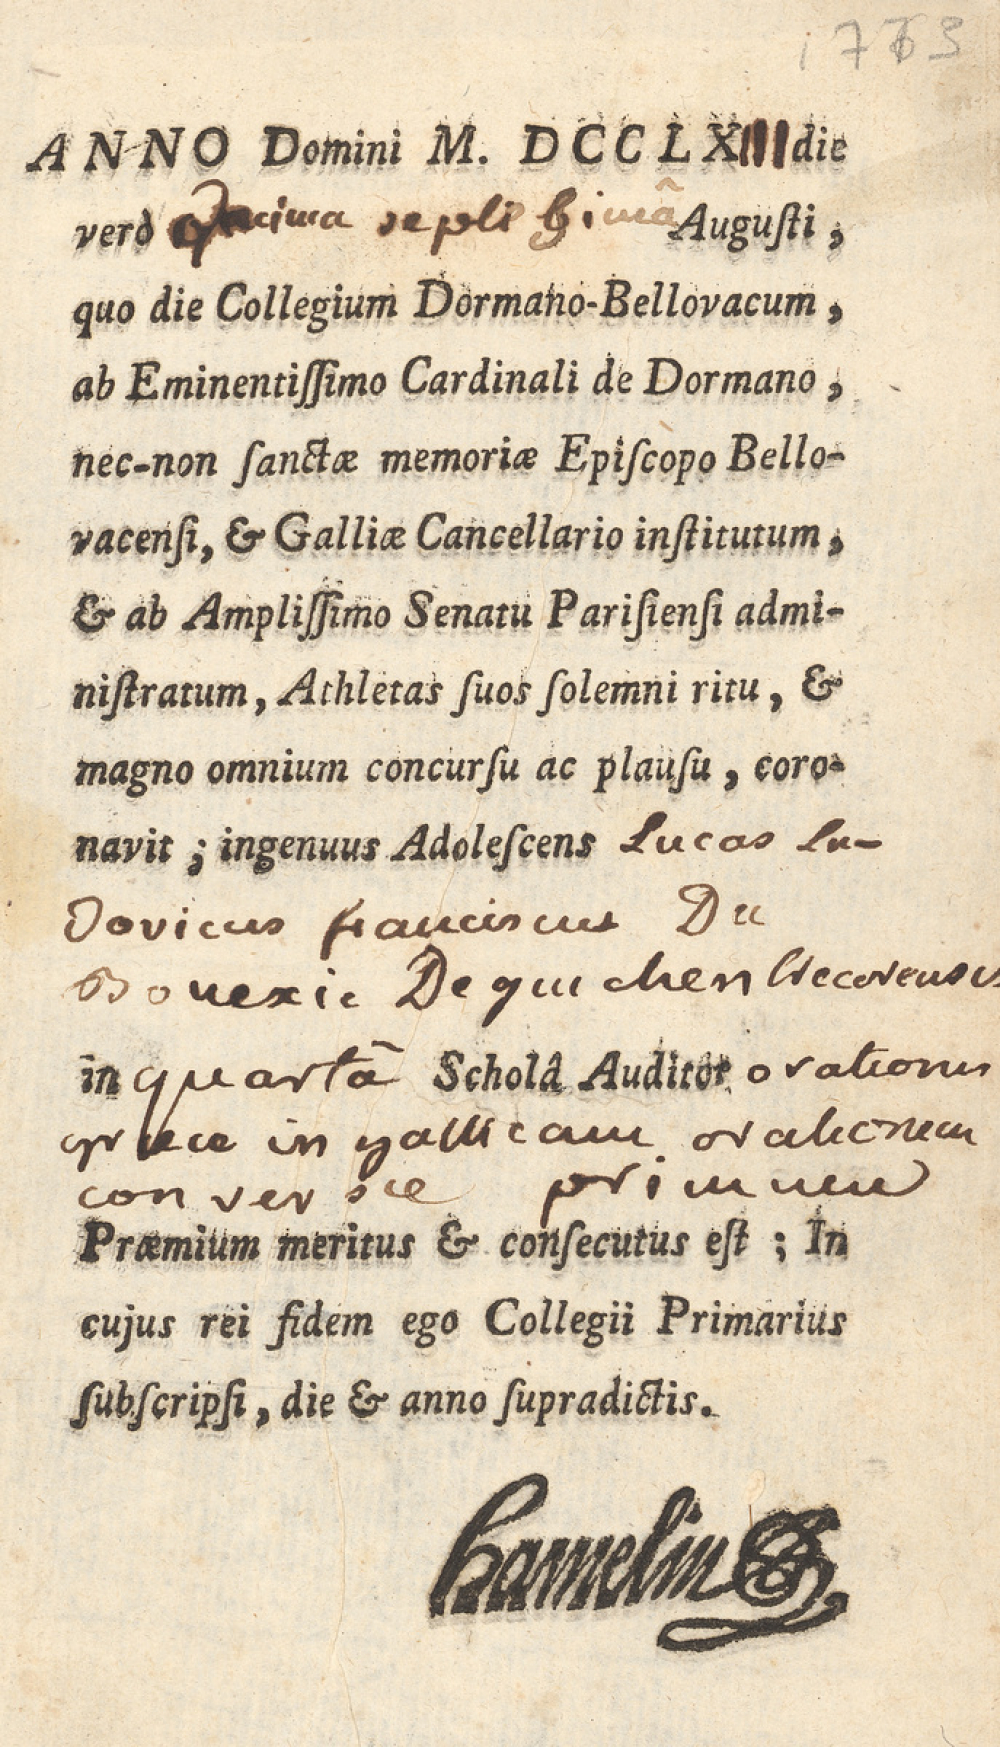 1763
ANNO Domini M. DCCLXIII die
verò decima septi bimâ Augusti,
quo die Collegium Dormano-Bellovacum,
ab Eminentissimo Cardinali de Dormano,
nec-non sanctæ memoriæ Episcopo Bello-
vacensi, & Galliæ Cancellario institutum,
& ab Amplissimo Senatu Parisiensi admi-
nistratum, Athletas suos solemni ritu, &
magno omnium concursu ac plausu, coro-
navit ; ingenuus Adolescens Lucas Lu-
dovicus franciscus Du
Bouexic De guichen
in quartâ Scholâ Auditor orationis
græce in gallicam orationem
conversæ primum
Præmium meritus & consecutus est ; In
cujus rei fidem ego Collegii Primarius
subscripsi, die & anno supradictis.
hamelin